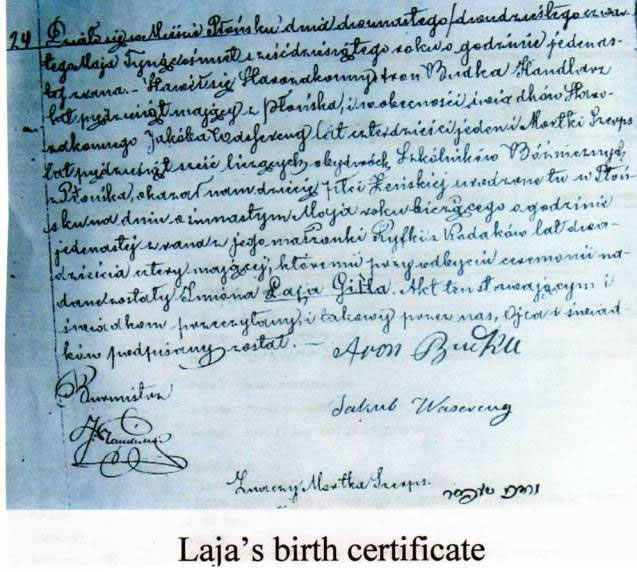 24 Działo się w Mieście Płońsku dnia dwunastego/dwudziestego czwar-
tego Maja Tysiąc ośmset sześćdziesiątego roku o godzinie jedenas-
tej zrana. – Stawił się Starozakonny Aron Budka Handlarz
lat pięćdziesiąt mający z Płońska, i w obecności świadków Staro-
zakonnego Jakóba Wasercug lat czterdzieści jeden i Mortki Szerps
lat pięćdziesiąt sześć liczących obydwóch Szkólników Bóżnicznych
z Płońska, okazał nam dziecię płci żeńskiej urodzone tu w Płoń-
sku na dniu osimnastym Maja roku bieżącego o godzinie
jedenastej zrana z jego małżonki Ryfki z Rodaków lat dwa-
dzieścia cztery mającej, któremu przy odbyciu ceremonii na-
dane zostały Imiona Łaja Gitla. Akt ten stawającym i
świadkom przeczytany, i takowy przez nas, Ojca i świad-
ków podpisany został. –
Aron Budka
Burmistrz
Jakub Wasercug
Znaczy Mortka Szerps.
Laja's birth certificate